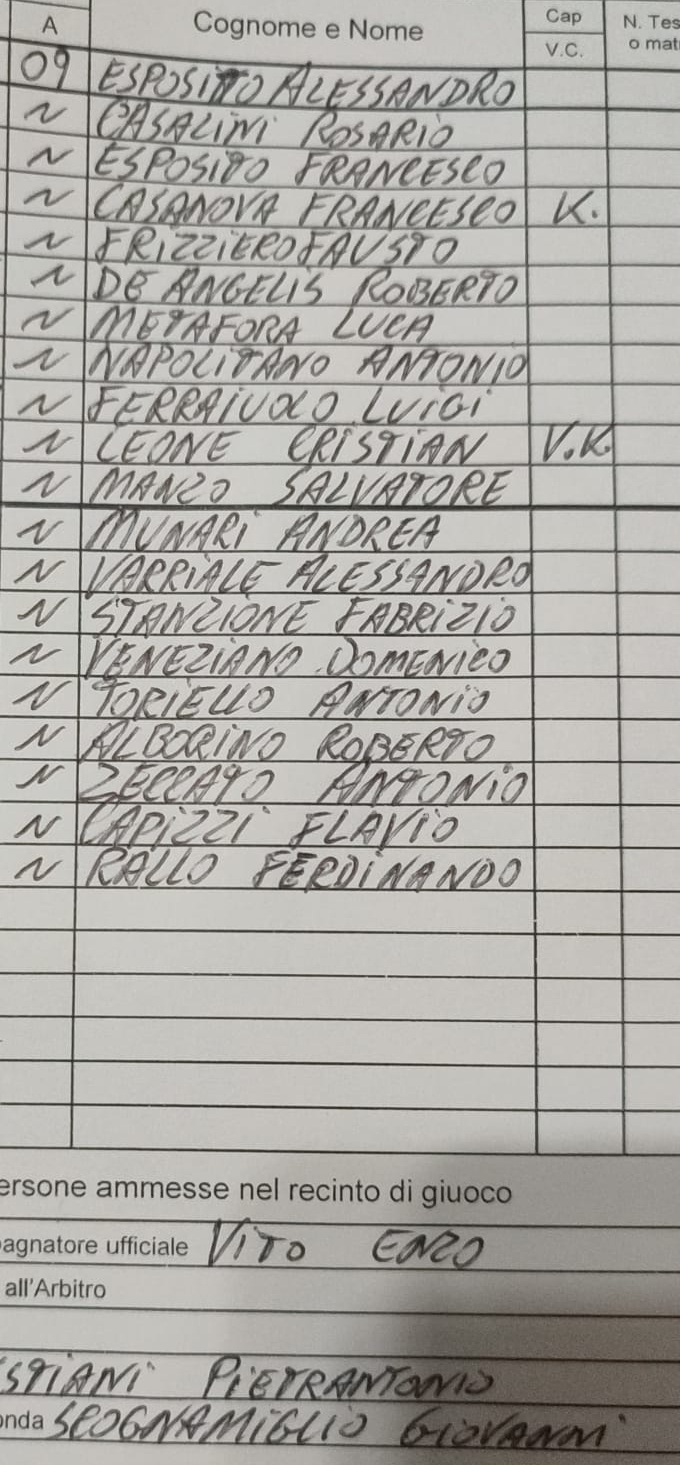 A Cognome e Nome Cap N. Tes
V.C. o mat
09 ESPOSITO ALESSANDRO
~ CASALINI ROSARIO
~ ESPOSITO FRANCESCO
~ CASANOVA FRANCESCO K.
~ FRIZZIERO FAUSTO
~ DE ANGELIS ROBERTO
~ METAFORA LUCA
~ NAPOLITANO ANTONIO
~ FERRAIUOLO LUIGI
~ LEONE CRISTIAN V.K.
~ MANZO SALVATORE
~ MUNARI ANDREA
~ VARRIALE ALESSANDRO
~ STANZIONE FABRIZIO
~ VENEZIANO DOMENICO
~ TORIELLO ANTONIO
~ ALBORINO ROBERTO
~ ZECCATO ANTONIO
~ CAPIZZI FLAVIO
~ RALLO FERDINANDO
ersone ammesse nel recinto di giuoco
agnatore ufficiale VITO ENZO
all'Arbitro
STIANI PIETRANTONIO
onda SCOGNAMIGLIO GIOVANNI